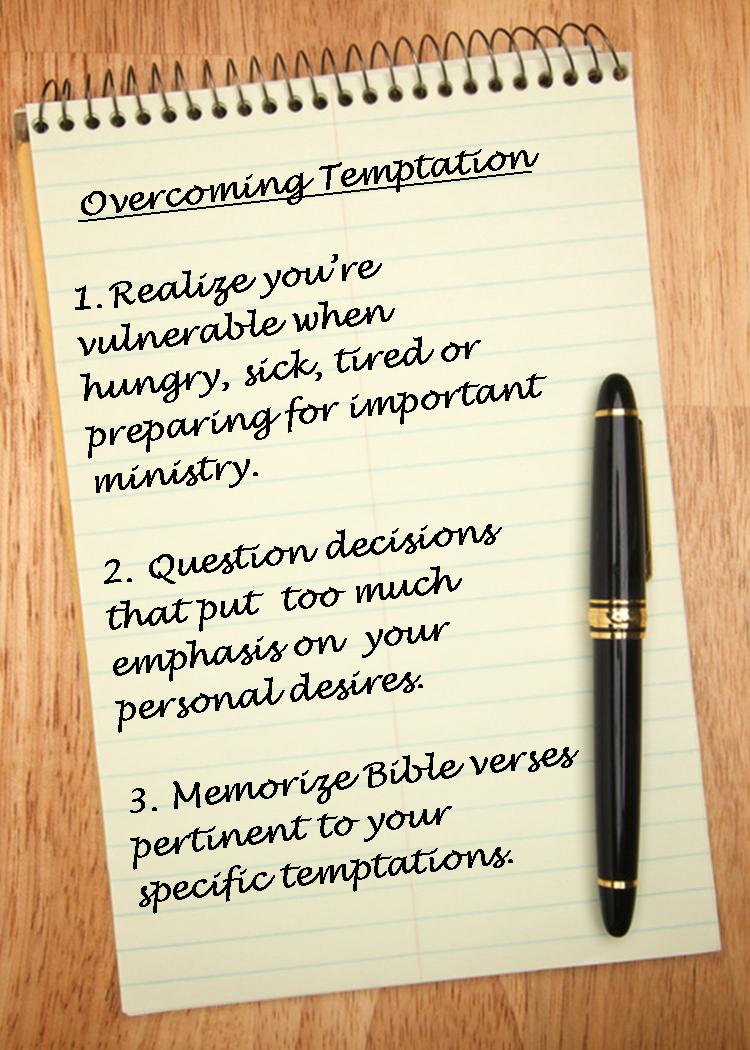 Overcoming Temptation
1. Realize you're
vulnerable when
hungry, sick, tired or
preparing for important
ministry.
2. Question decisions
that put  too much
emphasis on  your
personal desires.
3. Memorize Bible verses
pertinent to your
specific temptations.